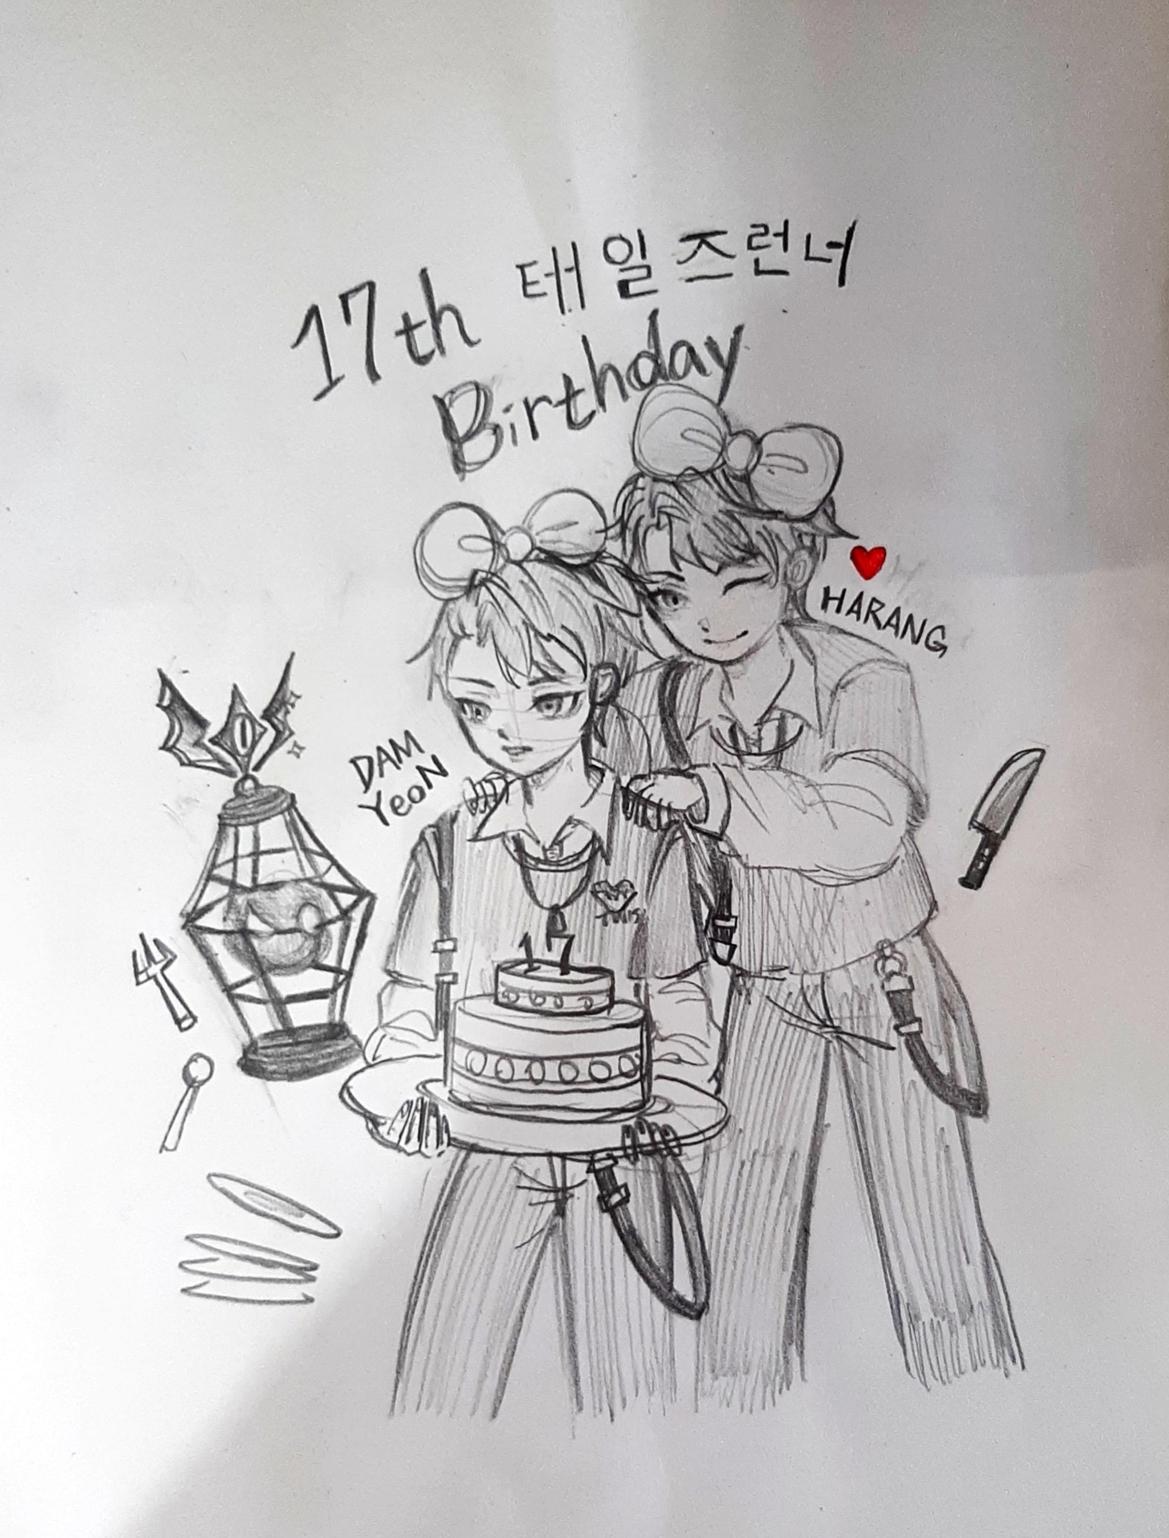 17th 태일즈런너
Birthday
HARANG
DAM
YeoN
17